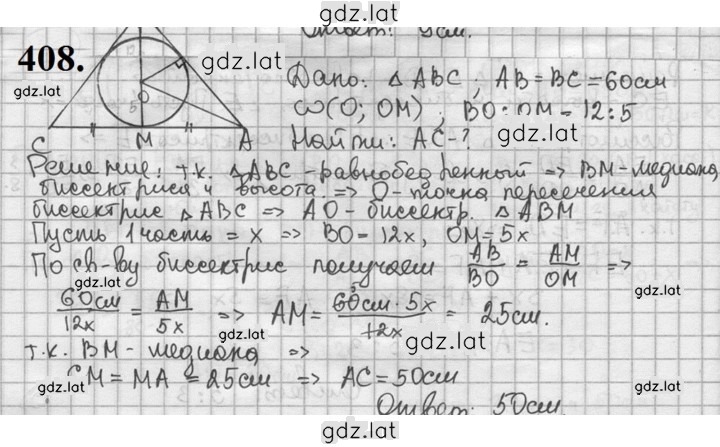 gdz.lat
Ответ: 9см.
408.
gdz.lat
Дано: △ABC, AB=BC=60см
gdz.lat
ω(O; OM), BO:OM=12:5
O
5
gdz.lat
C M A
Найти: AC-?
Решение: т.к. △ABC -равнобедренный => BM-медиана,
биссектриса и высота => O-точка пересечения
биссектрис △ABC => AO-биссектр. △ABM
Пусть 1 часть = x => BO=12x, OM=5x
По св-ву биссектрис получаем AB/BO = AM/OM =>
gdz.lat
60см/12x = AM/5x => AM = 60см·5x/12x = 25см.
gdz.lat
gdz.lat
т.к. BM-медиана =>
CM=MA=25см => AC=50см
gdz.lat
gdz.lat
Ответ: 50см.
gdz.lat